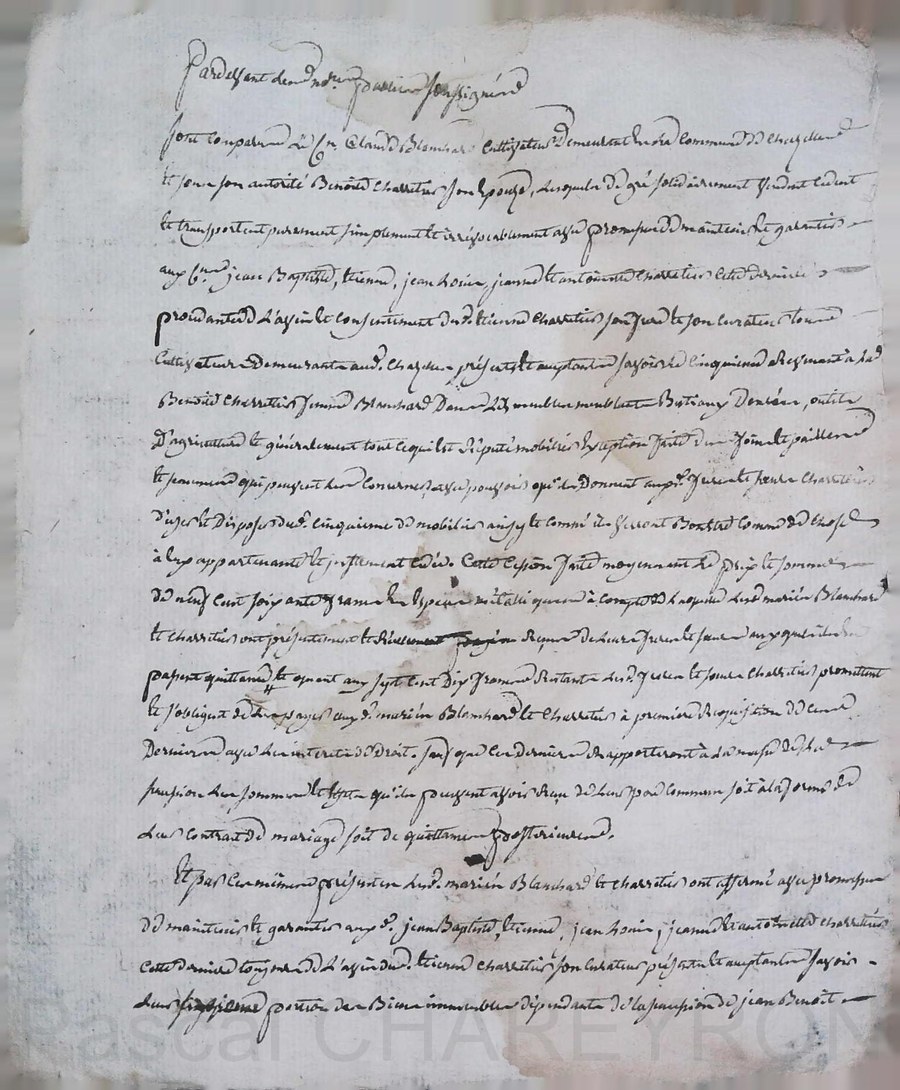 Pardevant les nores publics soussignés
sont comparus le Cn Claude Blanchard Cultivateur Demeurant en la Commune de Chazelles
Et sous son autorité Benoite Charretier son Epouze, lesquels de gré solidairement Vendent Cedent
Et transportent purement simplement Et irrévocablement avec promesse de maintenir Et garantir
aux Cns jean Baptiste, Etienne, jean Louis, jeanne Et antoinette Charretier Cette derniere
procédante de L'avis Et Consentement dud. Etienne Charretier son frere Et son Curateur tous
Cultivateurs Demeurants aud. Chazelles présents Et acceptants savoir Le Cinquieme Revenant à lad.
Benoite Charretier femme Blanchard Dans Les meubles meublants Bestiaux Denrées, outils
D'agriculture Et généralement tout Ce qui Est réputé mobilier Exception faite des foins Et pailles
Et qui peuvent les Concerner, avec pouvoir qu'ils Donnent auxd. freres Et sœurs Charretier
d'user Et Disposer dud. Cinquieme de mobilier ainsy Et Comme ils Verront Bon Etre Comme de Chose
à Eux appartenante Et justement Cedée. Cette Cession faite moyennant Le prix Et somme
De neuf Cent soixante francs En Espece métallique à Compte de laquelle Lesd mariés Blanchard
Et Charretier ont présentement Et réellement reçu de Leurs freres Et sœurs auxquels ils En
passent quittance, Et quant aux sept Cent Dix francs Restants Lesd. freres Et sœurs Charretier promettent
Et s'obligent de les payer auxd. mariés Blanchard Et Charretier à premiere Requisition de Ces
Derniers avec Les interets de Droit. sauf que Ces Derniers Rapporteront à La masse de La
succession Les sommes Et Effets qu'ils peuvent avoir Reçu de Leur pere Commun soit à la forme de
Leur Contrat de mariage soit de quittances postérieures.
Et par Ces mêmes présentes Lesd. mariés Blanchard Et Charretier ont affermé avec promesse
De maintenir Et garantir auxd. jean Baptiste, Etienne, jean Louis, jeanne Et antoinette Charretier
Cette derniere toujours de L'avis dud. Etienne Charretier son Curateur présents Et acceptants savoir
Leur portion des Biens immeubles dépendants de la succession de jean Benoît
Pascal CHAREYRON